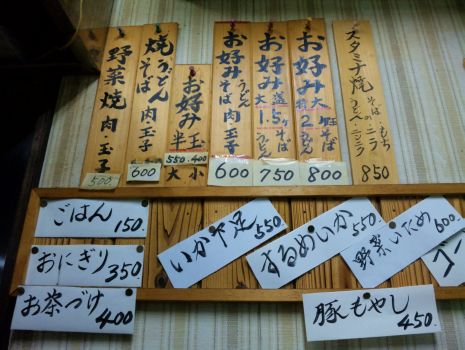 野菜焼 肉・玉子
500
焼うどん
そば 肉・玉子
600
お好み
半玉
550. 400
大 小
お好み
うどん
そば 肉・玉子
600
お好み
大盛 1.5
そば
うどん
750
お好み
特大 2
そば
うどん
800
スタミナ焼
850
ごはん 150.
おにぎり 350
お茶づけ 400
いか下足 550
するめいか 550
野菜いため 600.
コー
豚もやし 450.